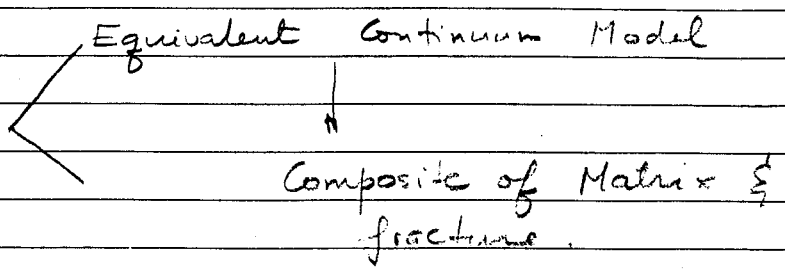 Equivalent Continuum Model
Composite of Matrix &
fractures.